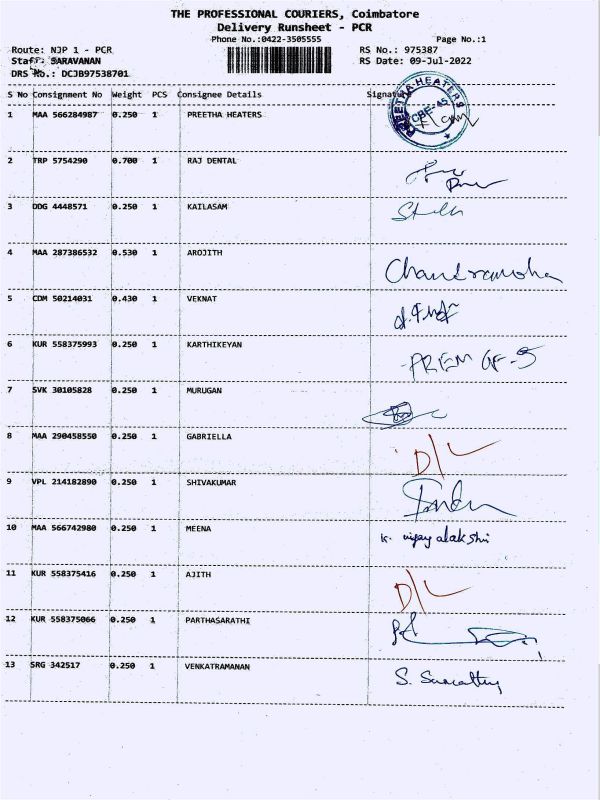 THE PROFESSIONAL COURIERS, Coimbatore
Delivery Runsheet - PCR
Phone No.:0422-3505555 Page No.:1
Route: NJP 1 - PCR RS No.: 975387
Staff: SARAVANAN RS Date: 09-Jul-2022
DRS No.: DCJB97538701
S No Consignment No Weight PCS Consignee Details Signature
1 MAA 566284987 0.250 1 PREETHA HEATERS PREETHA HEATERS CBE-45
2 TRP 5754290 0.700 1 RAJ DENTAL
3 DDG 4448571 0.250 1 KAILASAM
4 MAA 287386532 0.530 1 AROJITH Chandramoha
5 CDM 50214031 0.430 1 VEKNAT
6 KUR 558375993 0.250 1 KARTHIKEYAN PREM GF-5
7 SVK 30105828 0.250 1 MURUGAN
8 MAA 290458550 0.250 1 GABRIELLA D/L
9 VPL 214182890 0.250 1 SHIVAKUMAR
10 MAA 566742980 0.250 1 MEENA K. vijayalakshi
11 KUR 558375416 0.250 1 AJITH D/L
12 KUR 558375066 0.250 1 PARTHASARATHI
13 SRG 342517 0.250 1 VENKATRAMANAN